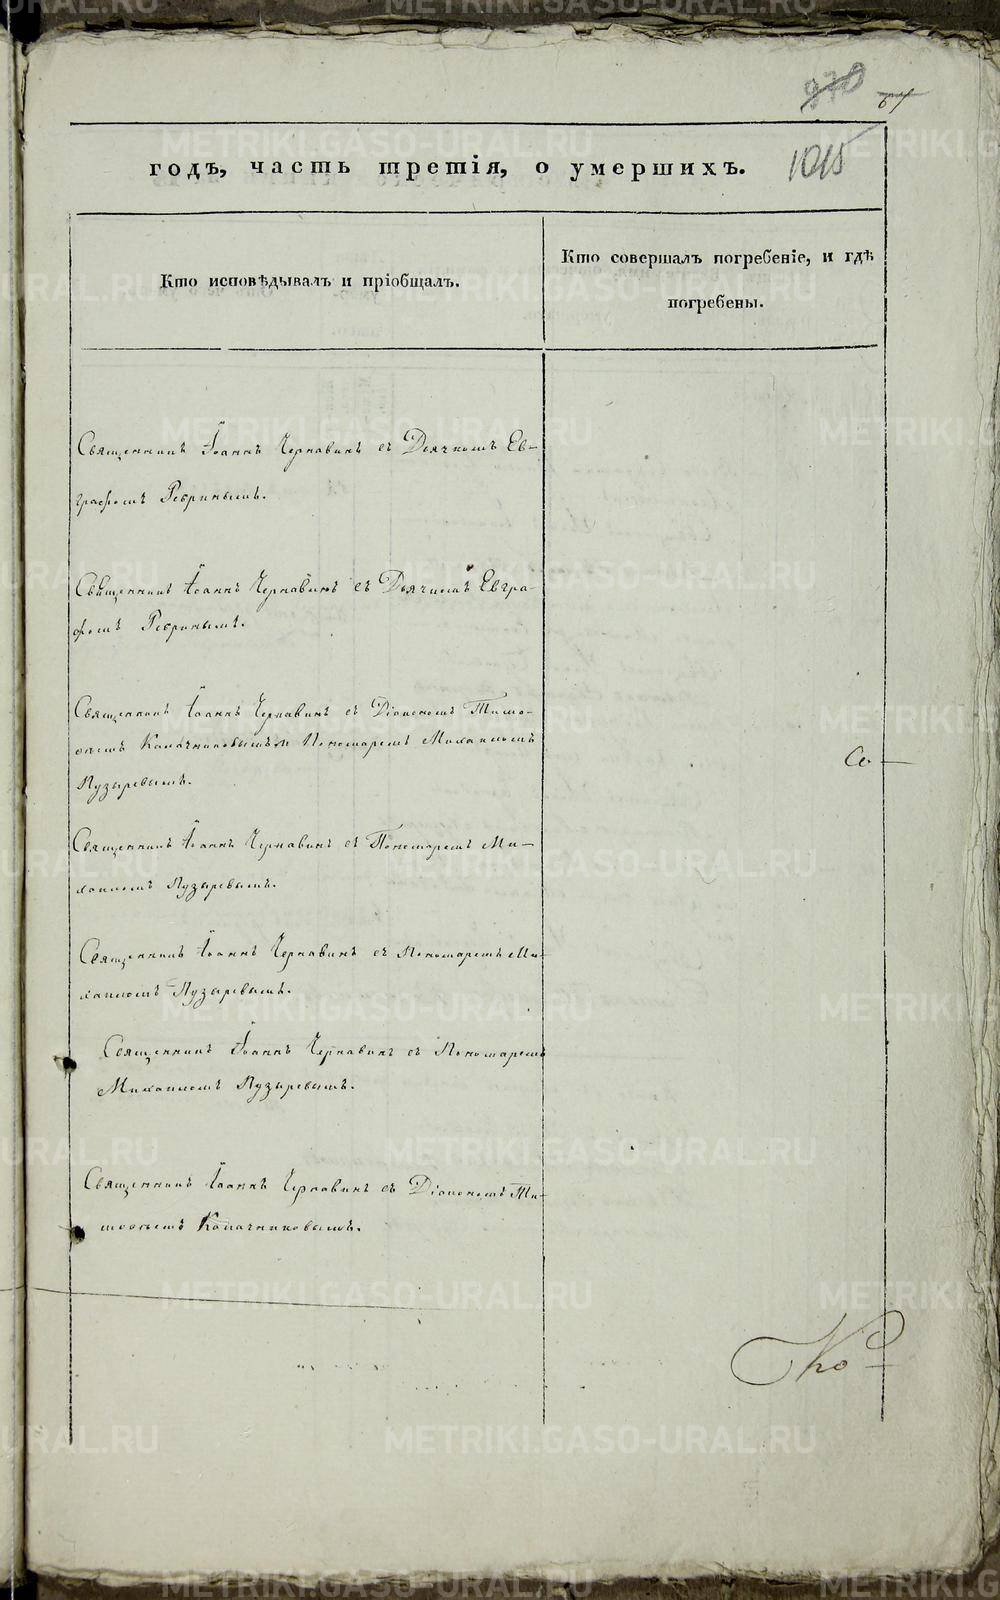 970 64
1015
годъ, часть третія, о умершихъ.
Кто исповѣдывалъ и пріобщалъ.
Кто совершалъ погребеніе, и гдѣ
погребены.
Священникъ Іоаннъ Чернавинъ съ Дьячкомъ Ев-
графомъ Ребринымъ.
Священникъ Іоаннъ Чернавинъ съ Дьячкомъ Евгра-
фомъ Ребринымъ.
Священникъ Іоаннъ Чернавинъ съ Діакономъ Тимо-
феемъ Калачниковымъ и Пономаремъ Михаиломъ
Пузыревымъ.
Се-
Священникъ Іоаннъ Чернавинъ съ Пономаремъ Ми-
хаиломъ Пузыревымъ.
Священникъ Іоаннъ Чернавинъ съ Пономаремъ Ми-
хаиломъ Пузыревымъ.
Священникъ Іоаннъ Чернавинъ съ Пономаремъ
Михаиломъ Пузыревымъ.
Священникъ Іоаннъ Чернавинъ съ Діакономъ Ти-
мофеемъ Калачниковымъ.
METRIKI.GASO-URAL.RU